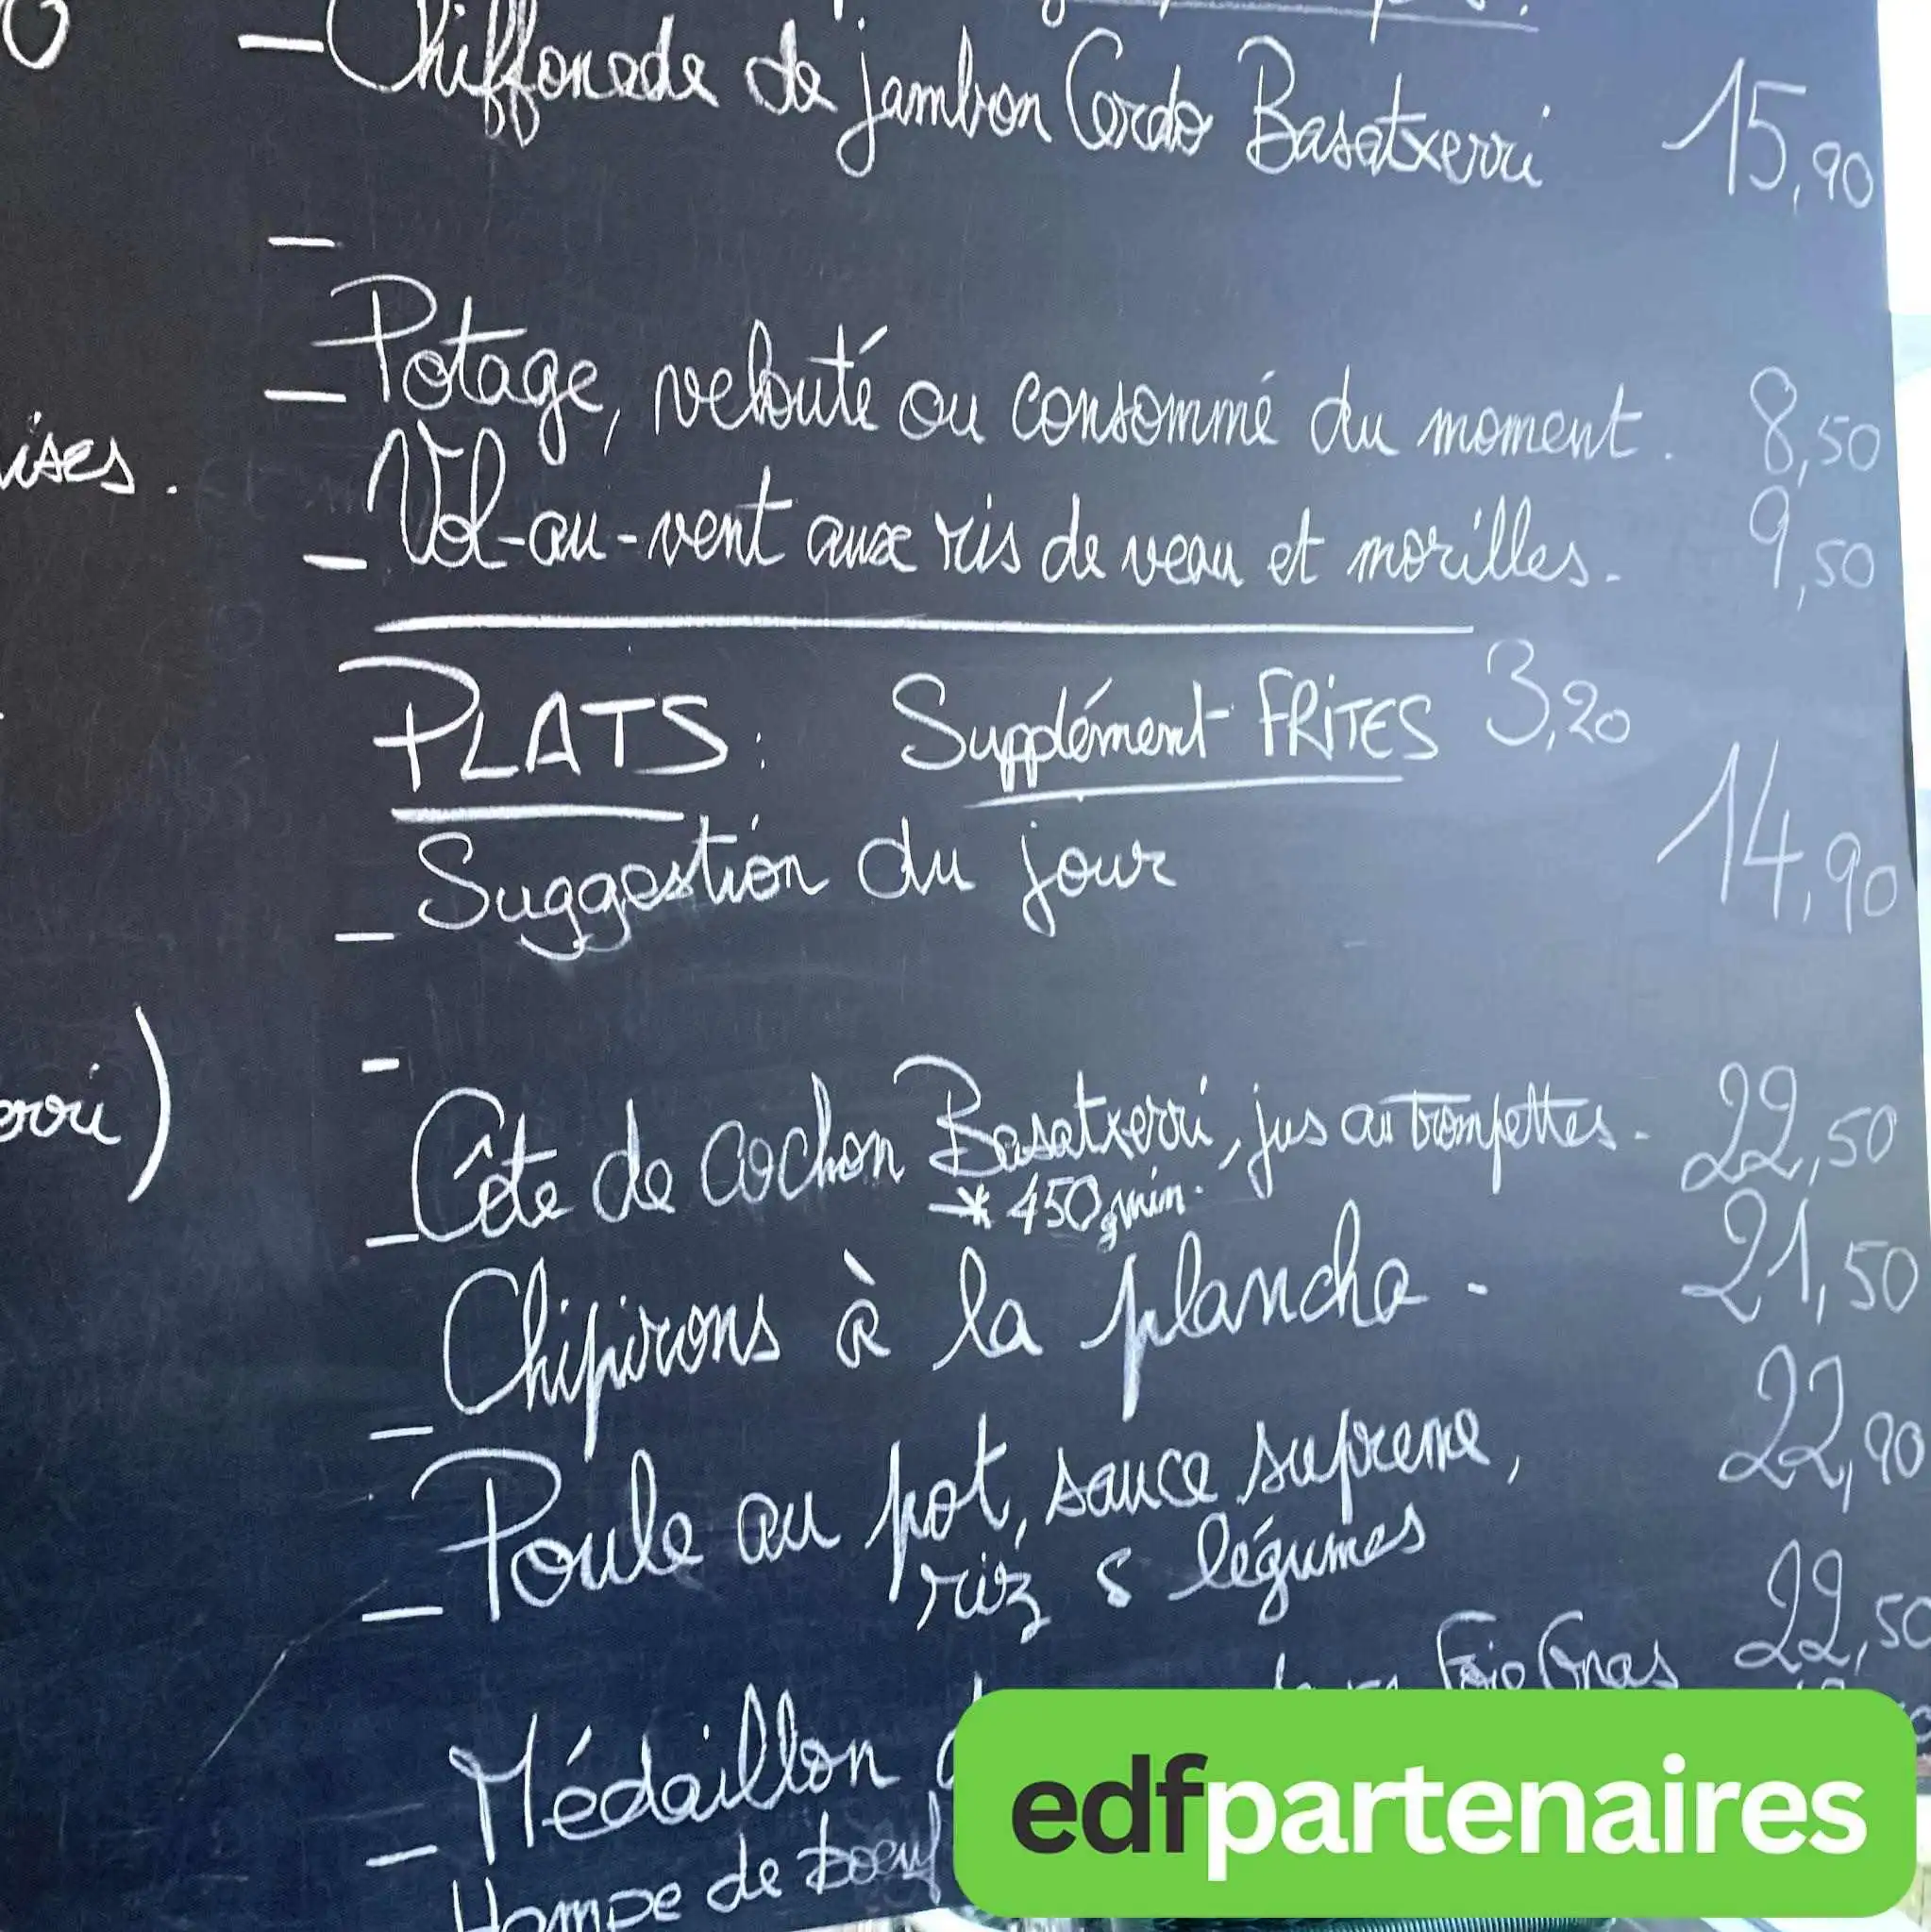 - Chiffonade de jambon Cerdo Basatxerri 15,90
-
- Potage, velouté ou consommé du moment. 8,50
- Vol-au-vent aux ris de veau et morilles. 9,50
PLATS: Supplément FRITES 3,20
- Suggestion du jour 14,90
-
- Côte de cochon Basatxerri, jus au trompettes. 22,50
* 450g min.
- Chipirons à la plancha. 21,50
- Poule au pot, sauce supreme, 22,90
riz & légumes
- Médaillon Foie Gras 22,50
Hampe de boeuf
ises.
erri)
edfpartenaires